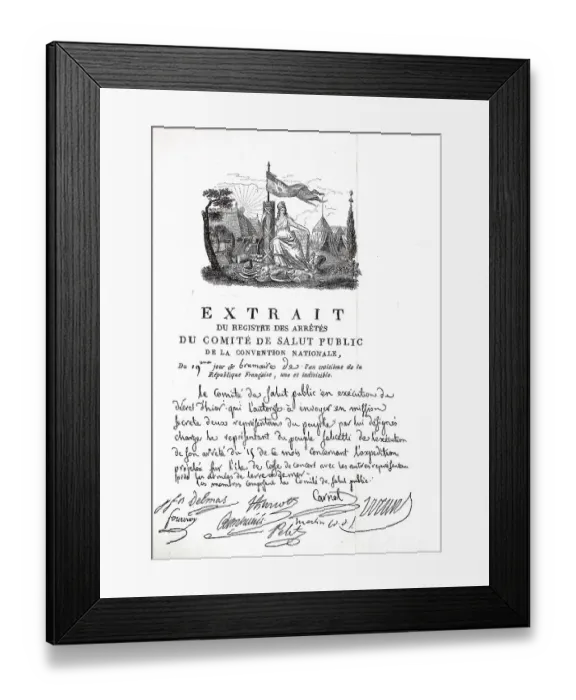 EXTRAIT
DU REGISTRE DES ARRÊTÉS
DU COMITÉ DE SALUT PUBLIC
DE LA CONVENTION NATIONALE,
Du 19me jour de brumaire de l'an troisième de la
République Française, une et indivisible.
le Comité du Salut public en exécution du
décret d'hier qui l'autorise à envoyer en mission
secrete deux représentans du peuple par lui désignés
charge le représentant du peuple salicetti de l'exécution
de son arrêté du 15 de ce mois concernant l'expédition
projetée sur l'île de Corse de concert avec les autres représentans
près les armées de terre et de mer.
les membres composant le Comité de salut public
Delmas
Carnot
fourcroy
Cambacérès
merlin (d. d.)
Pelet